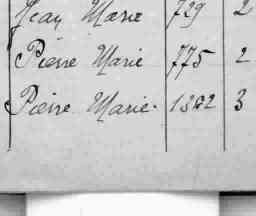 Jean Marie 729 2
Pierre Marie 775 2
Pierre Marie 1302 3